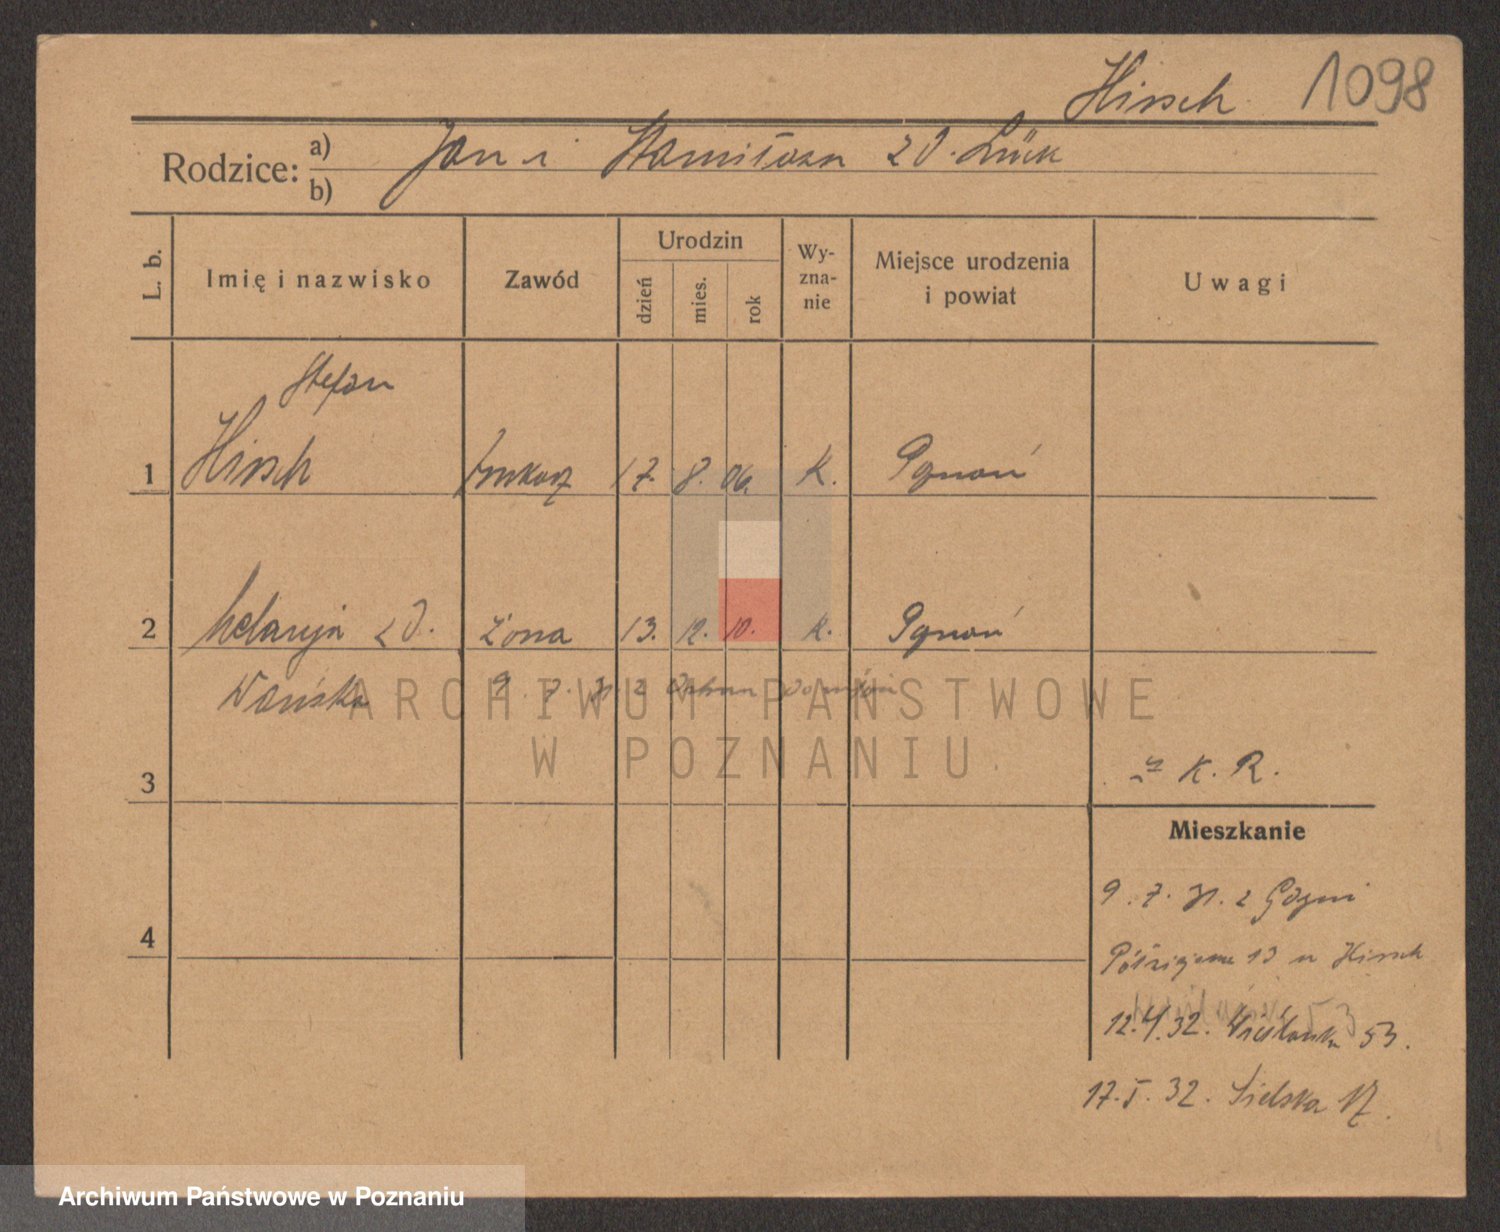 Hirsch 1098
Rodzice: a) Jan i Stanisława z d. Lück
b)
L. b. Imię i nazwisko Zawód Urodzin dzień mies. rok Wy-zna-nie Miejsce urodzenia i powiat Uwagi
Stefan
1 Hirsch drukarz 17. 8. 06. K. Poznań
2 Helaryja z d. żona 13. 12. 10. k. Poznań
Wańska 9. 7. 31 z
ARCHIWUM PAŃSTWOWE
W POZNANIU
3 K. R.
Mieszkanie
9. 7. 31. z Gdyni
4
Półwiejska 13 u Hirsch
12.4.32. 53.
17.5.32. Sielska 17.
Archiwum Państwowe w Poznaniu